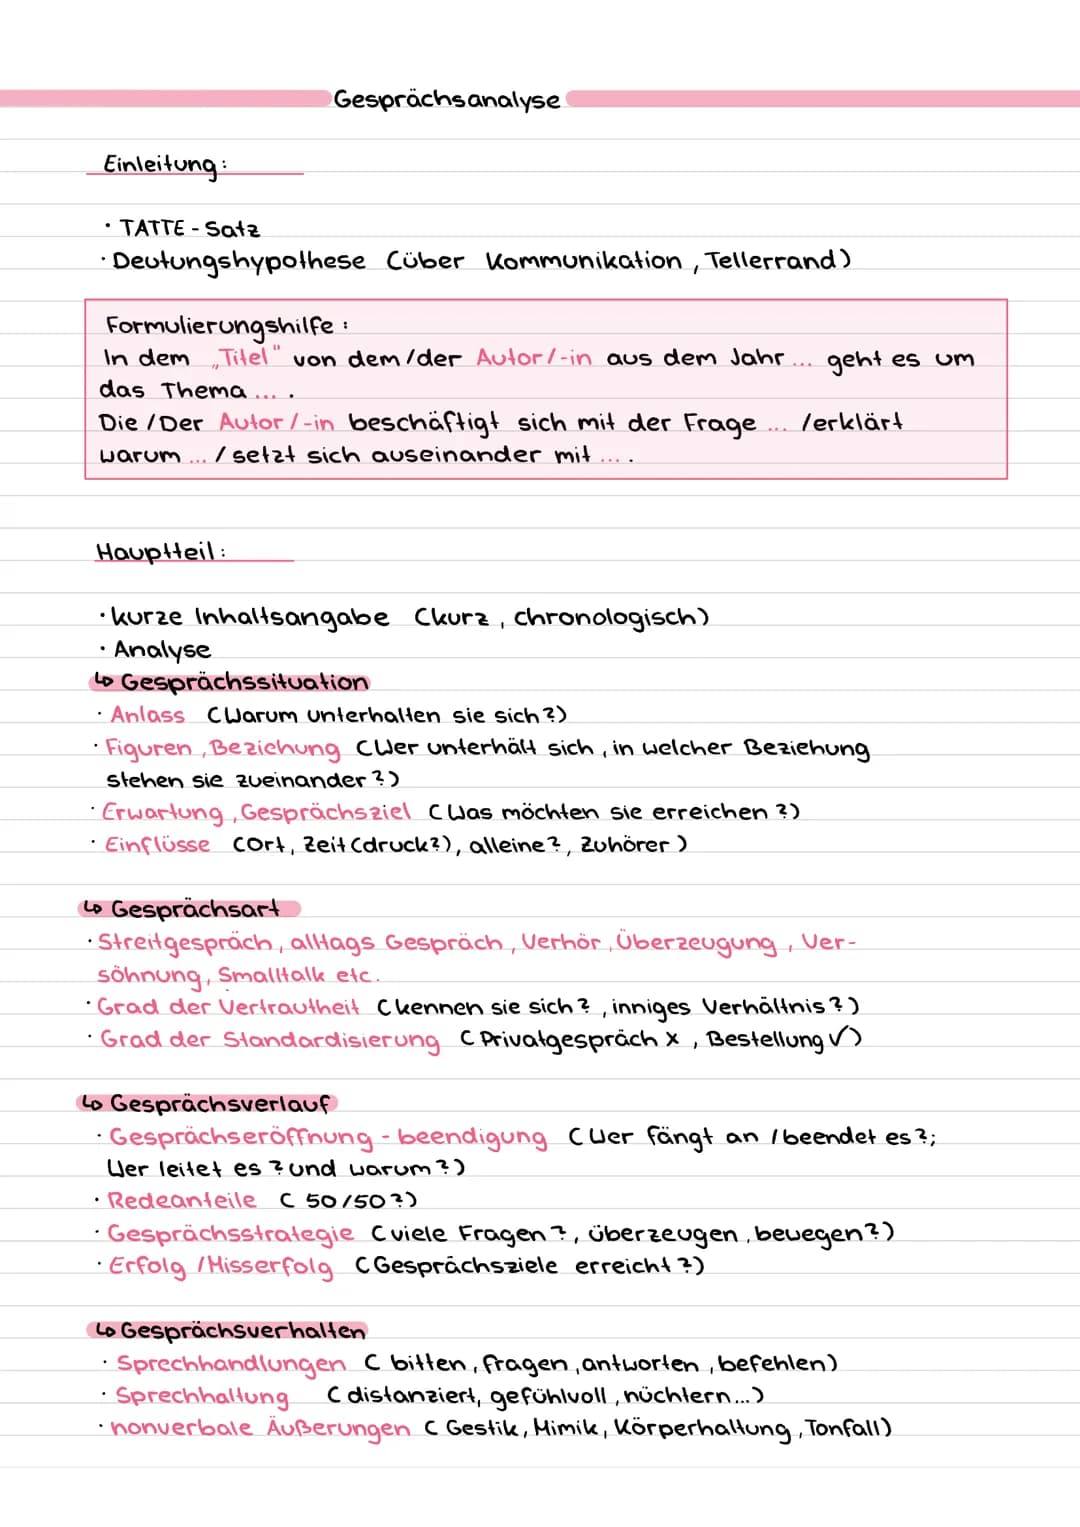 Gesprächsanalyse
Einleitung:
· TATTE - Satz
· Deutungshypothese (über Kommunikation, Tellerrand)
Formulierungshilfe:
In dem „Titel" von dem/der Autor/-in aus dem Jahr ... geht es um
das Thema ... .
Die/Der Autor/-in beschäftigt sich mit der Frage ... /erklärt
warum ... / setzt sich auseinander mit ... .
Hauptteil:
· kurze Inhaltsangabe (kurz, chronologisch)
· Analyse
↳ Gesprächssituation
· Anlass (Warum unterhalten sie sich?)
· Figuren, Beziehung (Wer unterhält sich, in welcher Beziehung
stehen sie zueinander?)
· Erwartung, Gesprächsziel (Was möchten sie erreichen?)
· Einflüsse (Ort, Zeit(druck?), alleine?, Zuhörer)
↳ Gesprächsart
· Streitgespräch, alltags Gespräch, Verhör, Überzeugung, Ver-
söhnung, Smalltalk etc.
· Grad der Vertrautheit (kennen sie sich?, inniges Verhältnis?)
· Grad der Standardisierung (Privatgespräch x, Bestellung ✓)
↳ Gesprächsverlauf
· Gesprächseröffnung - beendigung (Wer fängt an / beendet es?;
Wer leitet es? und warum?)
· Redeanteile (50/50?)
· Gesprächsstrategie (viele Fragen?, überzeugen, bewegen?)
· Erfolg / Misserfolg (Gesprächsziele erreicht?)
↳ Gesprächsverhalten
· Sprechhandlungen (bitten, fragen, antworten, befehlen)
· Sprechhaltung (distanziert, gefühlvoll, nüchtern...)
· nonverbale Äußerungen (Gestik, Mimik, Körperhaltung, Tonfall)